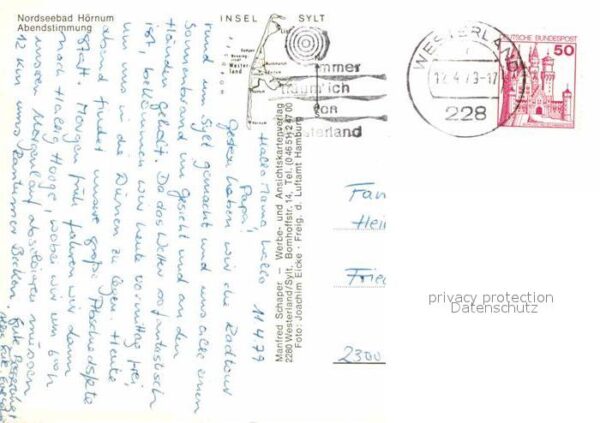 Nordseebad Hörnum
Abendstimmung
INSEL SYLT
Wester-
land
immer
nämlich
Westerland
WESTERLAND
12.4.79-17
228
DEUTSCHE BUNDESPOST
50
Manfred Schaper – Werbe- und Ansichtskartenverlag
2280 Westerland/Sylt, Bomhoffstr. 14, Tel. (04651) 24700
Foto: Joachim Eicke · Freig. d. Luftamt Hamburg
11.4.79
Hallo Mama, hallo
Papa!
Gestern haben wir die Radtour
rund um Sylt gemacht und uns alle einen
Sonnenbrand im Gesicht und an den
Händen geholt. Da das Wetter so fantastisch
ist, bekommen wir heute vormittag frei,
um uns in die Dünen zu legen. Heute
abend findet unsere große Abschiedsfete
statt. Morgen früh fahren wir dann
nach Hallig Hooge, wobei wir um 6.00h
unseren Morgenlauf absolvieren müssen
12 km ums Rantumer Becken.
Fam
Hein
Fried
2300
privacy protection
Datenschutz